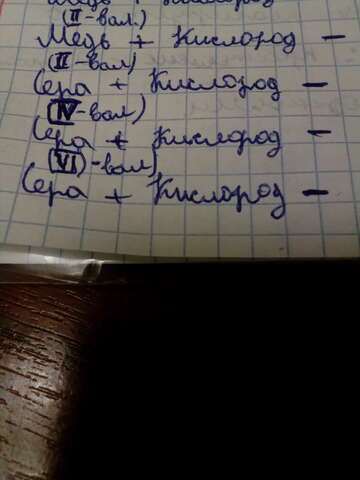 (II-вал.)
Медь + Кислород -
(II-вал)
Сера + Кислород -
(IV-вал)
Сера + Кислород -
(VI)-вал)
Сера + Кислород -